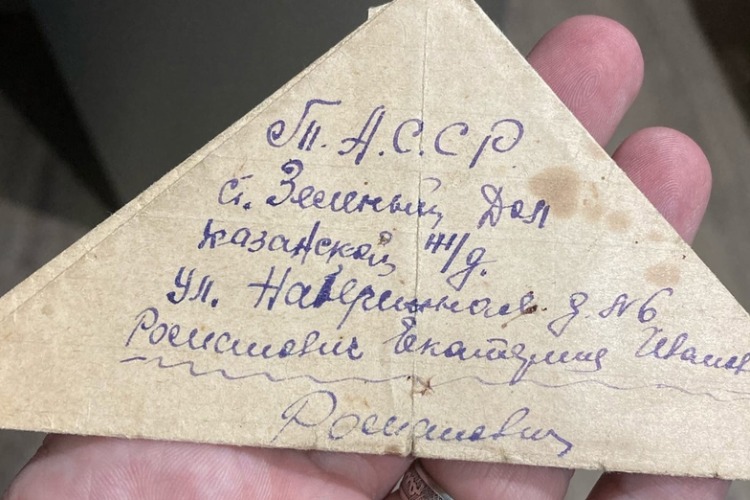 Т.А.С.С.Р
ст. Зеленый Дол
Казанской ж/д.
ул. Набережная д. №6
Романович Екатерине Иванов
Романович